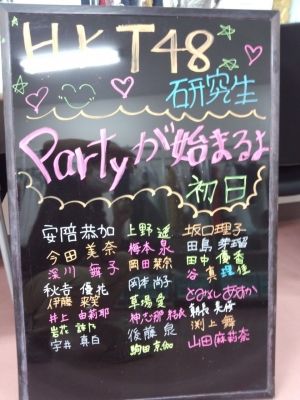 HKT48
研究生
Partyが始まるよ
初日
安陪恭加
今田美奈
深川舞子
秋吉優花
伊藤来笑
井上由莉耶
岩花詩乃
宇井真白
上野遥
梅本泉
岡田栞奈
岡本尚子
草場愛
神志那結衣
後藤泉
駒田京伽
坂口理子
田島芽瑠
田中優香
谷真理佳
とみよしあすか
朝長美桜
渕上舞
山田麻莉奈